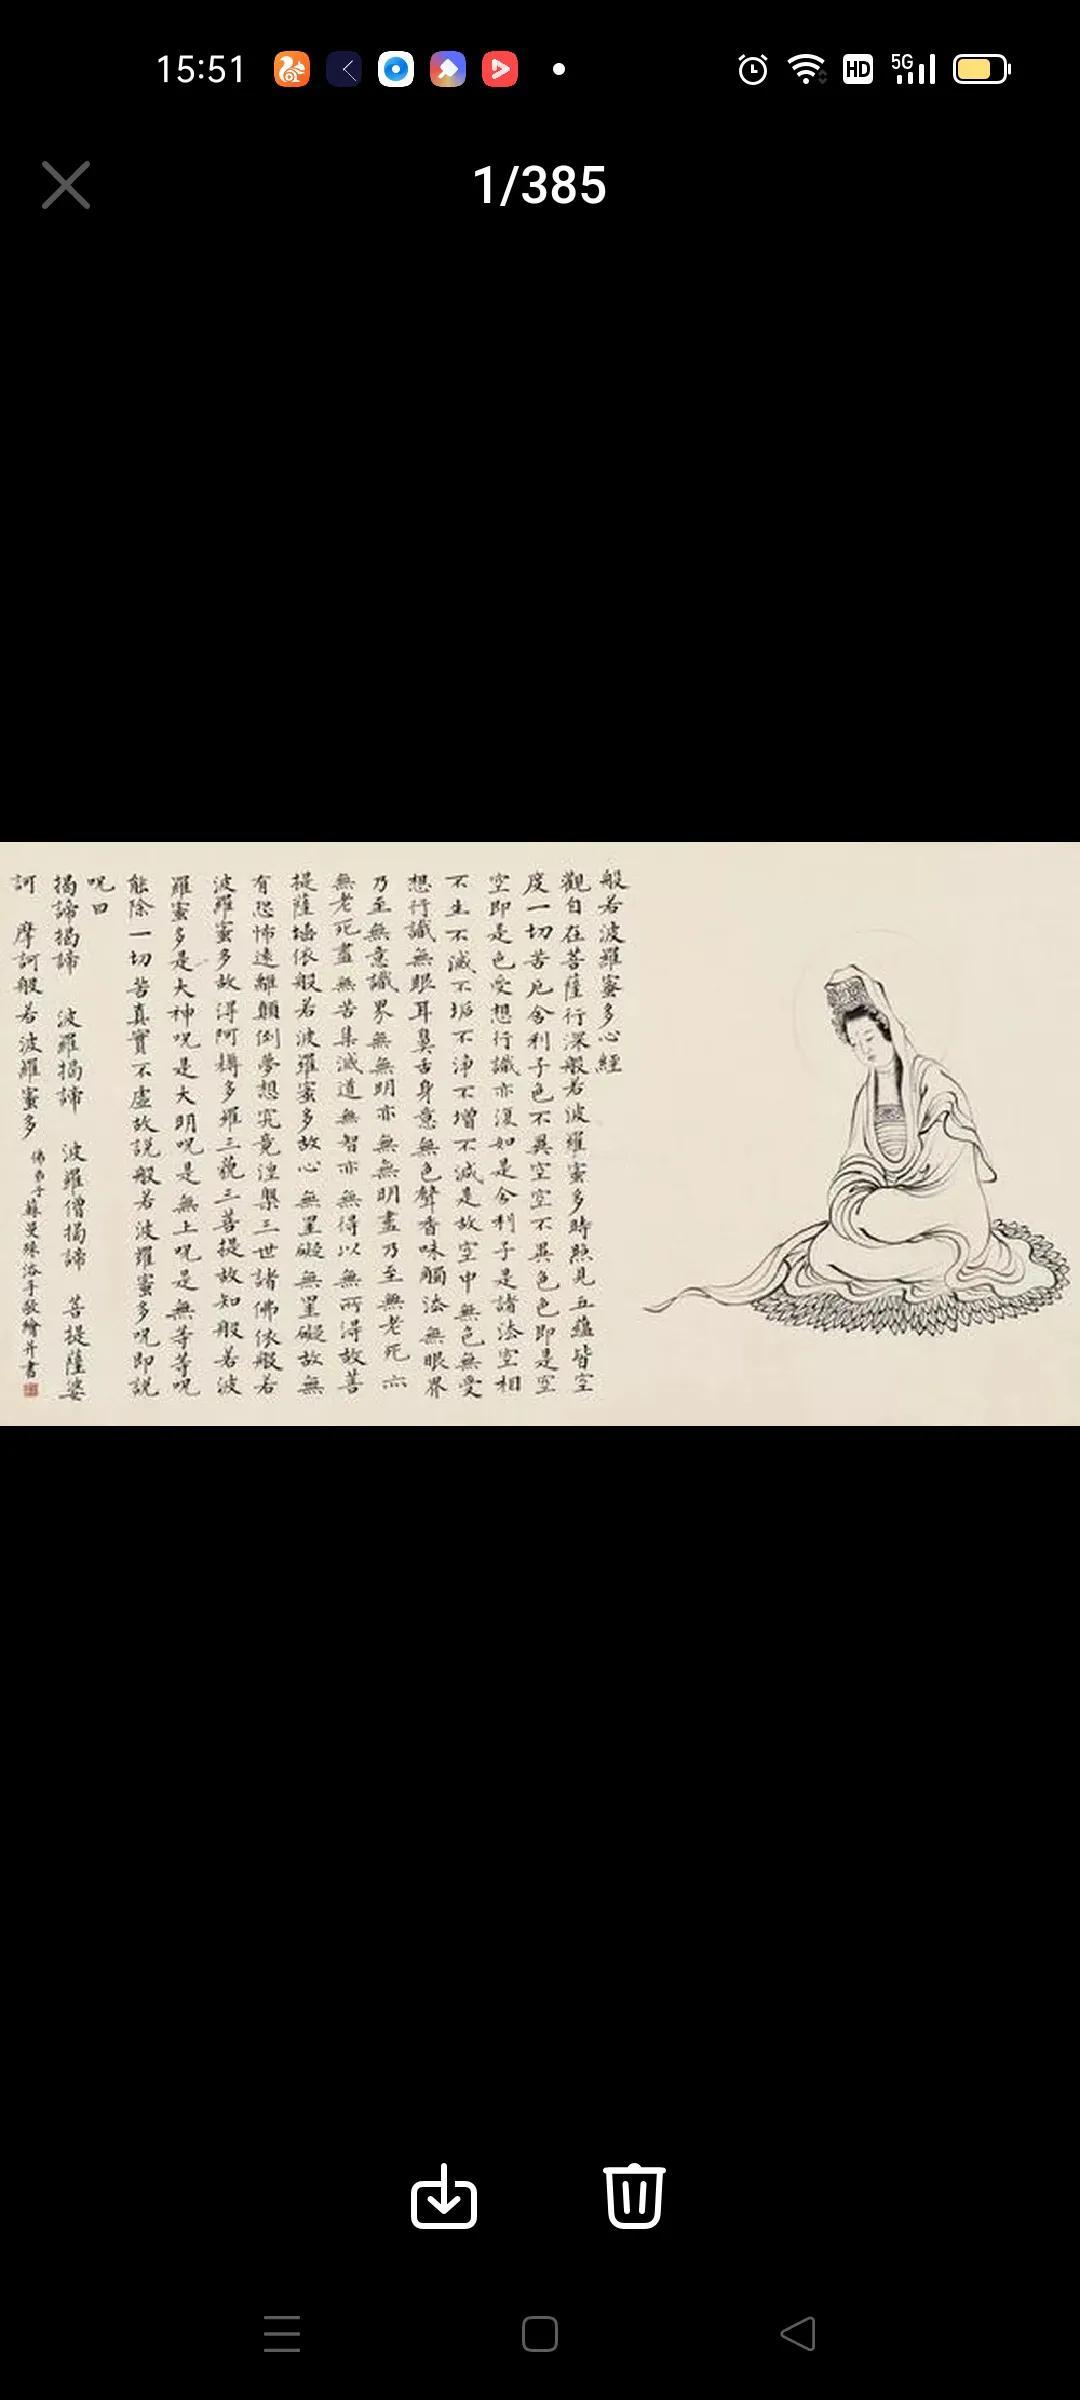 15:51
HD
5G
1/385
般若波羅蜜多心經
觀自在菩薩行深般若波羅蜜多時照見五蘊皆空
度一切苦厄舍利子色不異空空不異色色即是空
空即是色受想行識亦復如是舍利子是諸法空相
不生不滅不垢不淨不增不減是故空中無色無受
想行識無眼耳鼻舌身意無色聲香味觸法無眼界
乃至無意識界無無明亦無無明盡乃至無老死亦
無老死盡無苦集滅道無智亦無得以無所得故菩
提薩埵依般若波羅蜜多故心無罣礙無罣礙故無
有恐怖遠離顛倒夢想究竟涅槃三世諸佛依般若
波羅蜜多故得阿耨多羅三藐三菩提故知般若波
羅蜜多是大神呪是大明呪是無上呪是無等等呪
能除一切苦真實不虛故說般若波羅蜜多呪即說
呪曰
揭諦揭諦 波羅揭諦 波羅僧揭諦 菩提薩婆
訶 摩訶般若波羅蜜多
佛弟子蘇曼殊浴手敬繪并書